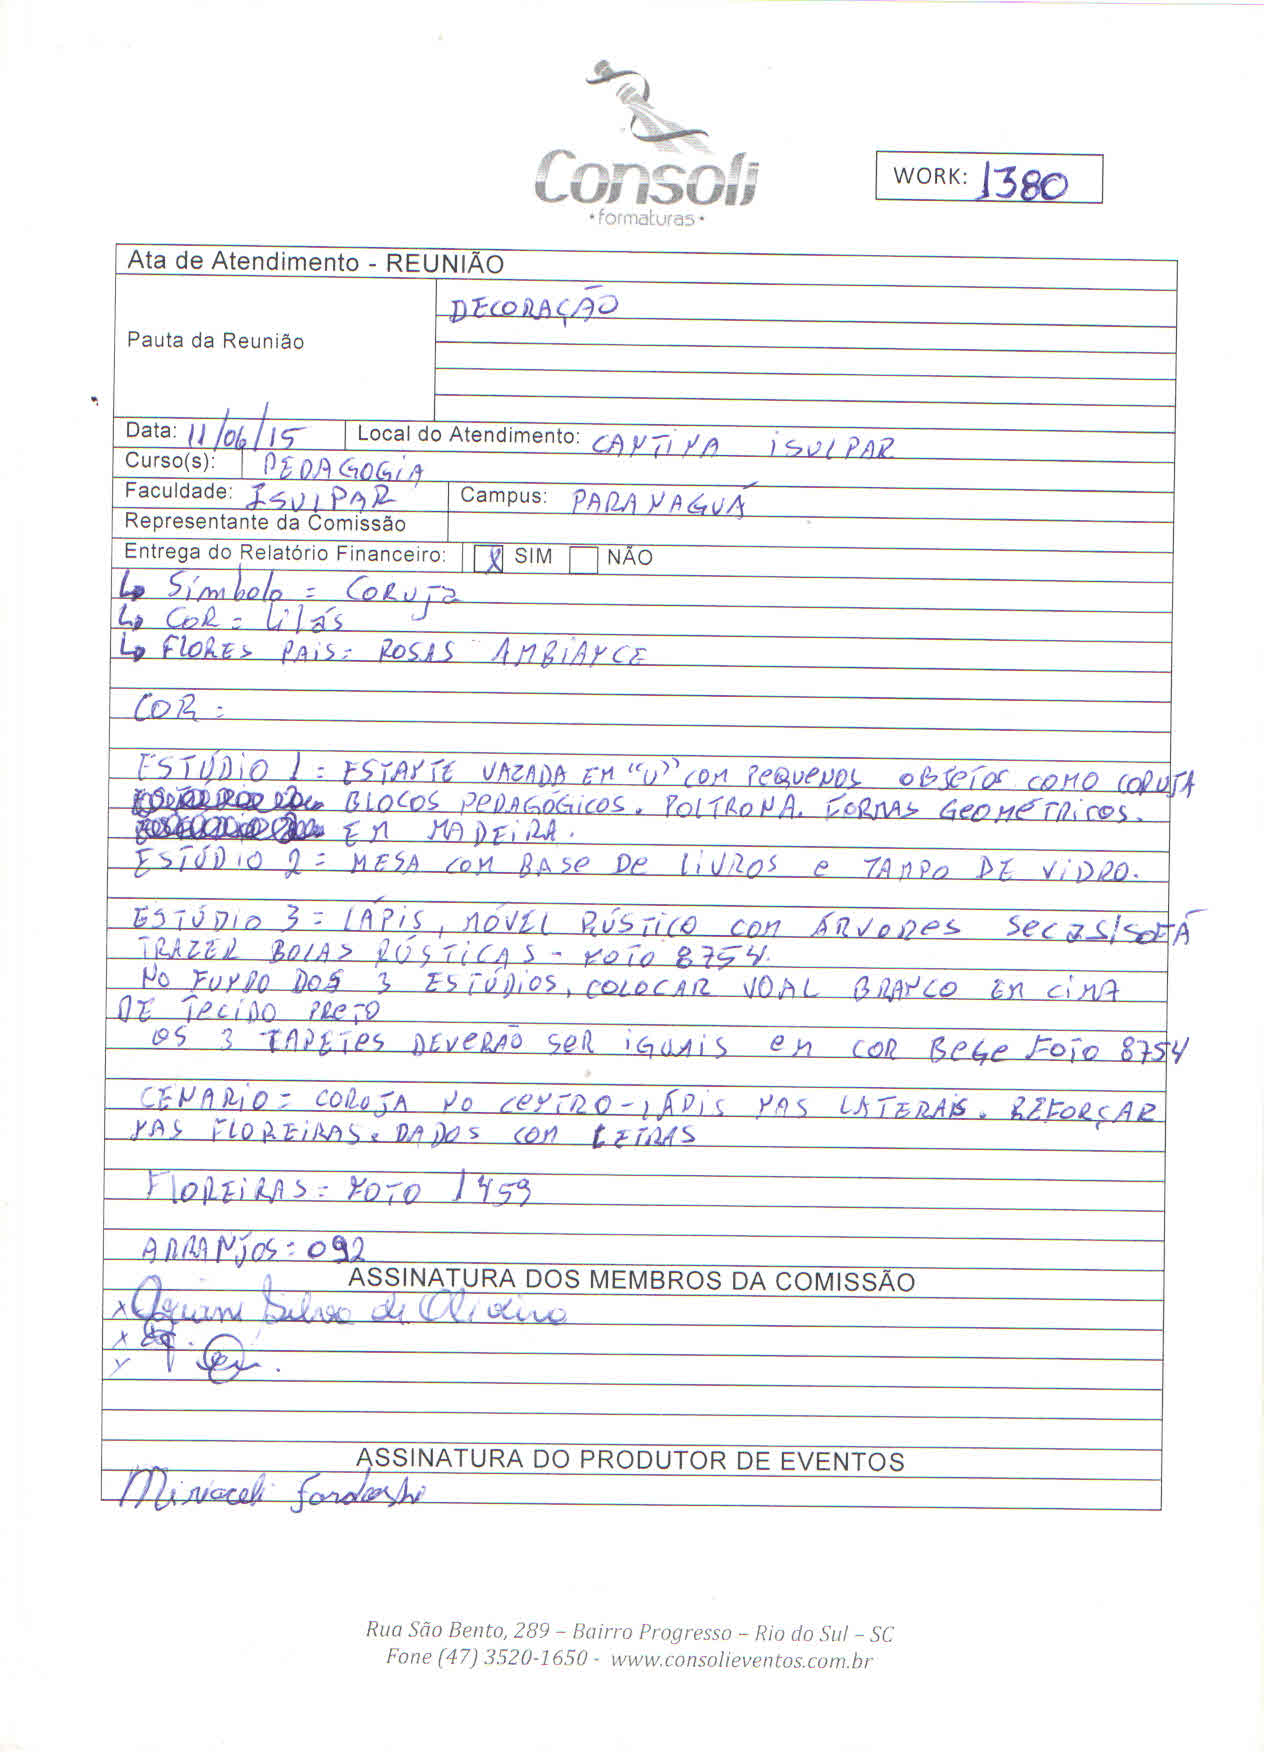 Consoli
•formaturas•
WORK: 1380
Ata de Atendimento - REUNIÃO
Pauta da Reunião
DECORAÇÃO
Data: 11/06/15 Local do Atendimento: CANTINA ISULPAR
Curso(s): PEDAGOGIA
Faculdade: ISULPAR Campus: PARANAGUÁ
Representante da Comissão
Entrega do Relatório Financeiro: X SIM NÃO
Símbolo = Coruja
COR = Lilás
FLORES PAIS= ROSAS AMBIANCE
COR :
ESTÚDIO 1 = ESTANTE VAZADA EM "U" COM PEQUENOS OBJETOS COMO CORUJA
BLOCOS PEDAGÓGICOS. POLTRONA. FORMAS GEOMÉTRICOS.
EM MADEIRA.
ESTÚDIO 2 = MESA COM BASE DE LIVROS e TAMPO DE VIDRO.
ESTÚDIO 3 = LÁPIS, MÓVEL RÚSTICO COM ÁRVORES SECAS/SOFÁ
TRAZER BOLAS RÚSTICAS - FOTO 8754.
NO FUNDO DOS 3 ESTÚDIOS, COLOCAR VOAL BRANCO EM CIMA
DE TECIDO PRETO
OS 3 TAPETES DEVERÃO SER IGUAIS em COR BEGE FOTO 8754
CENARIO= CORUJA NO CENTRO-LÁPIS NAS LATERAIS. REFORÇAR
NAS FLOREIRAS. DADOS COM LETRAS
FLOREIRAS= FOTO 1459
ARRANJOS= 092
ASSINATURA DOS MEMBROS DA COMISSÃO
x Silva de Oliveira
x
ASSINATURA DO PRODUTOR DE EVENTOS
Rua São Bento, 289 – Bairro Progresso – Rio do Sul – SC
Fone (47) 3520-1650 - www.consolieventos.com.br